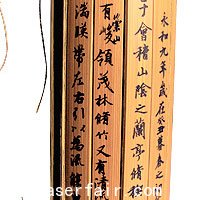 永和九年歲在癸丑暮春之
于會稽山陰之蘭亭脩
有崇山峻領茂林脩竹又有清
湍暎帶左右引以為流觴
aserfair.com